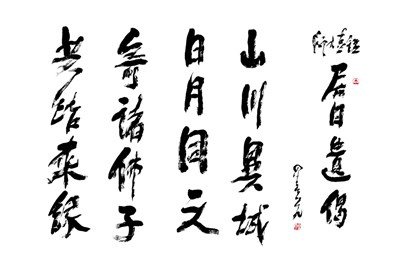 日遺偈
山川異域
日月同天
寄諸佛子
共結來緣